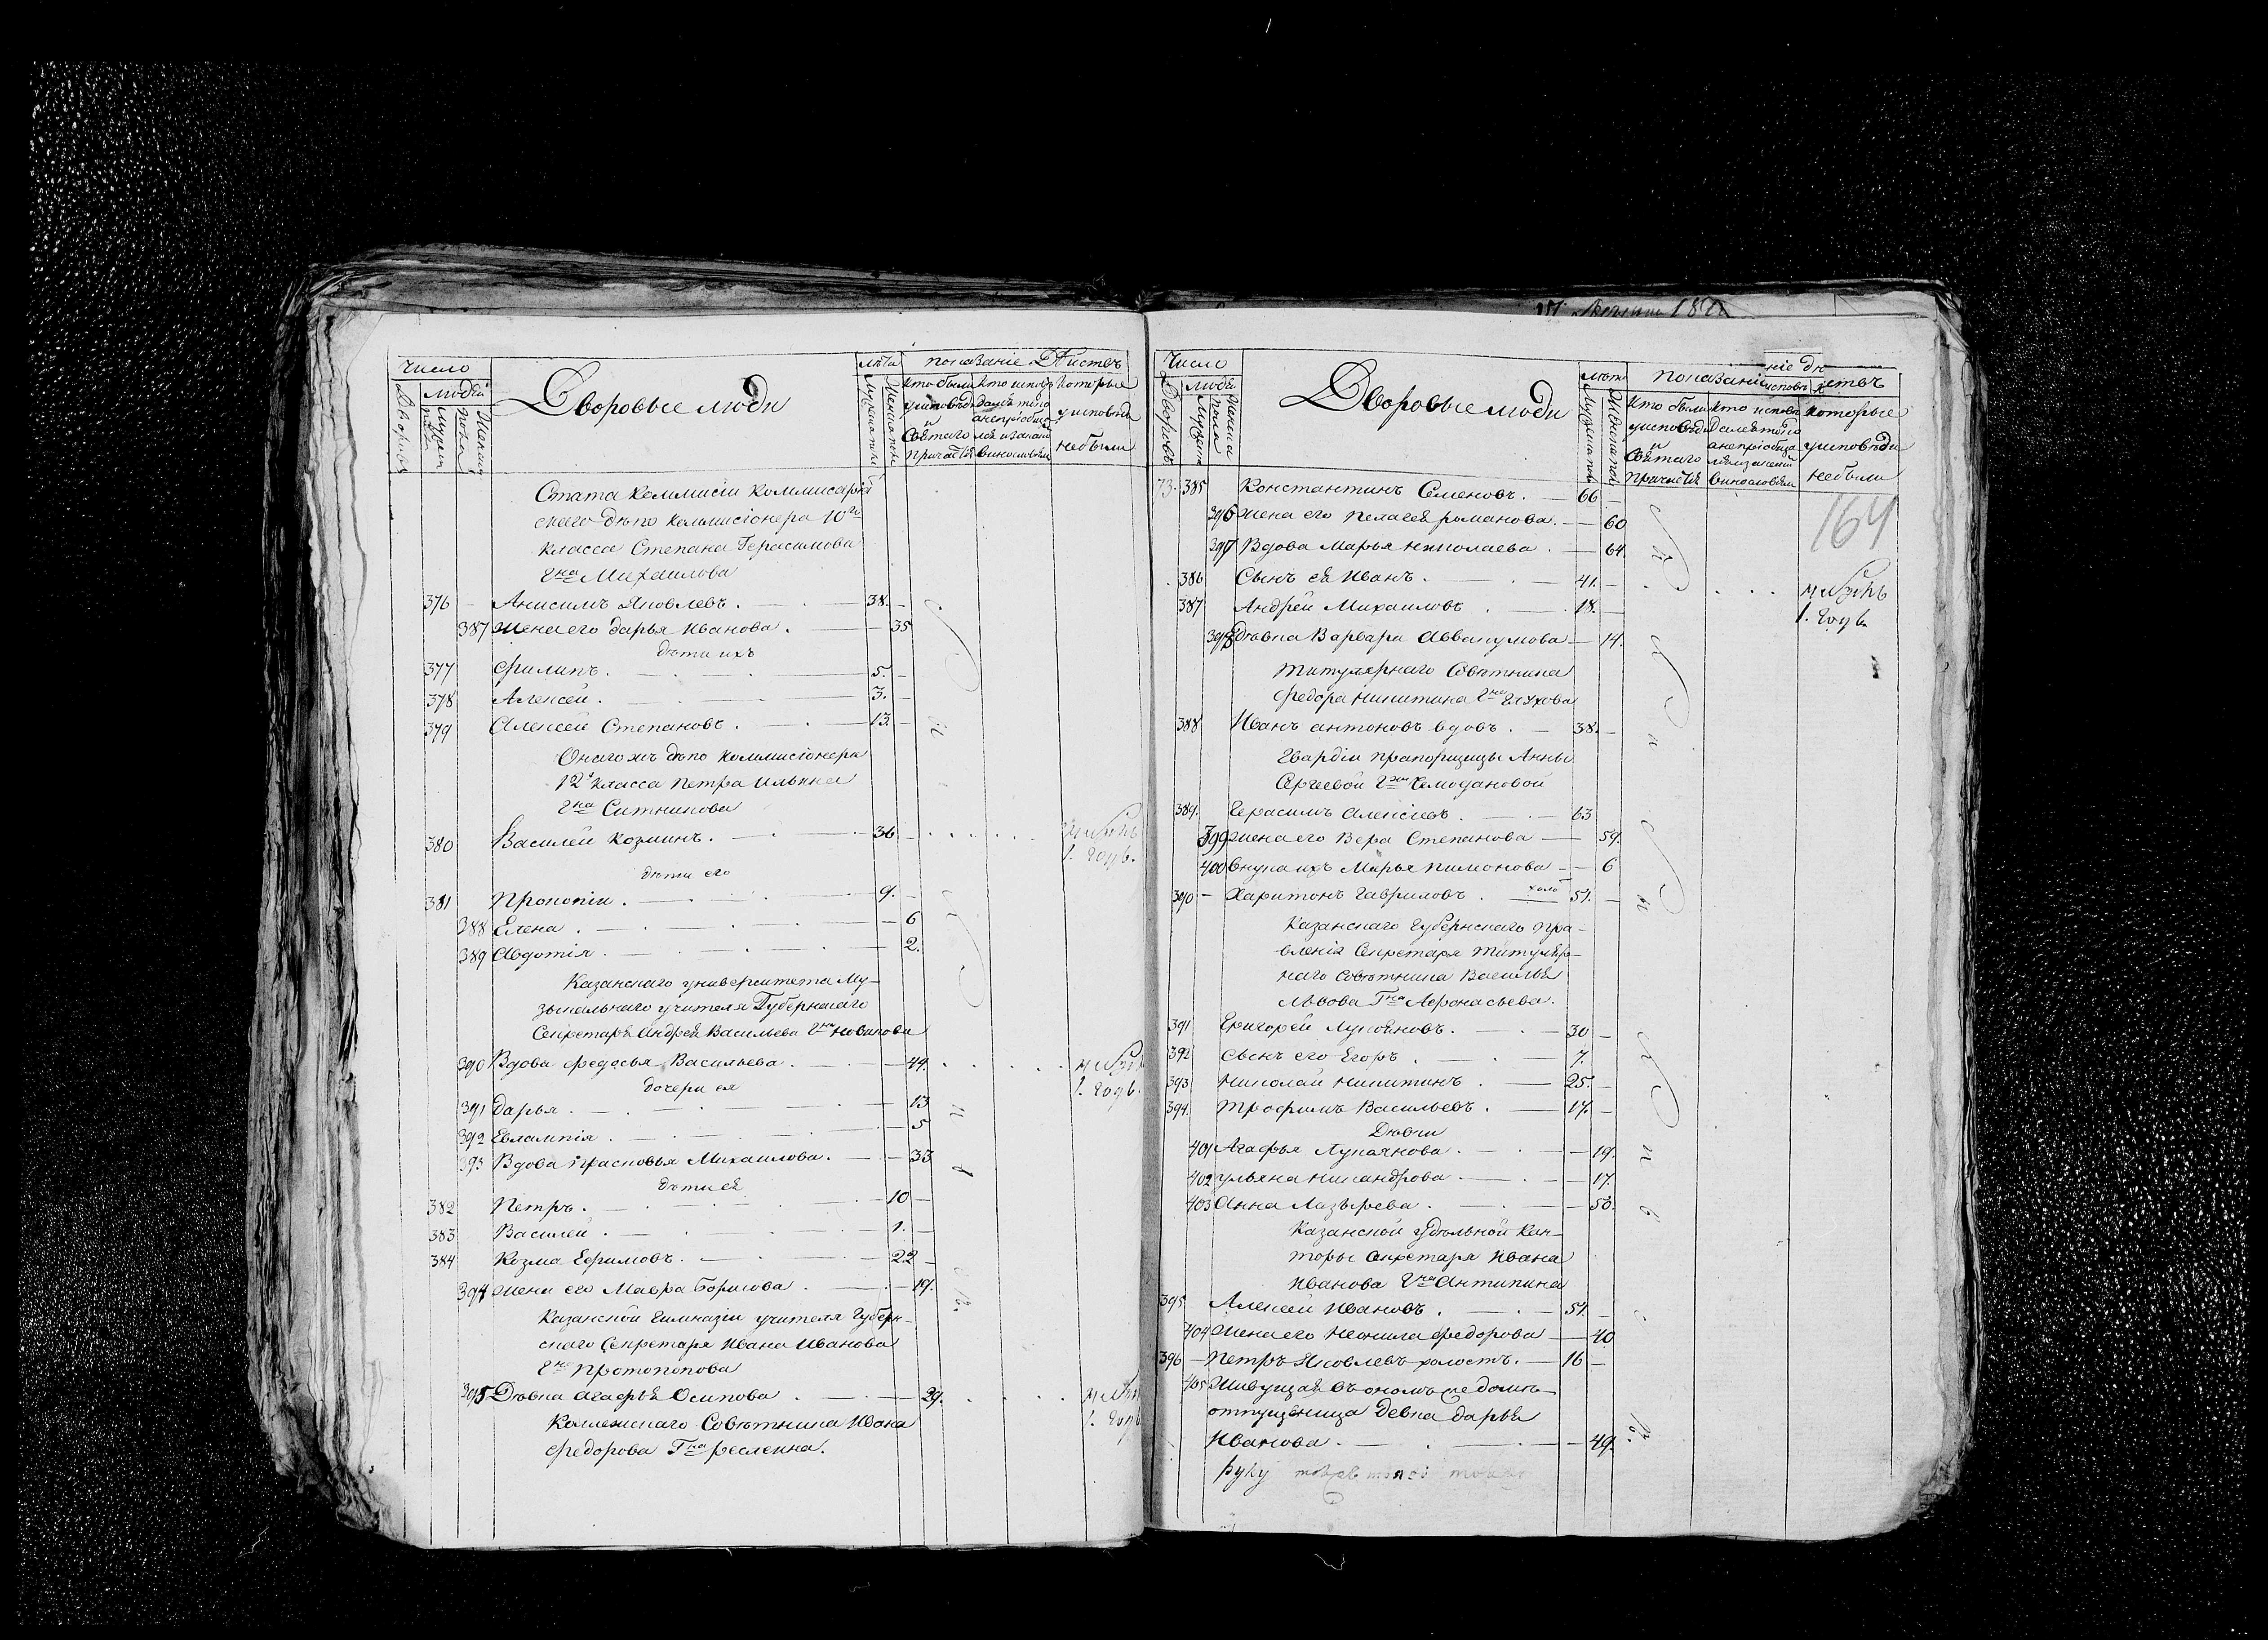 Число
Дворовые люди
лѣта
показаніе Дѣйствъ
людей
Мужеска пола
Женска пола
кто были у исповѣди и святаго причастія
которые у исповѣди небыли
Стата Коммисіи Коммисаріат
скаго депо Коммисіонера 10го
класса Степана Герасимова
Гна Михаилова
376 Анисимъ Яковлевъ. 38.
387 Жена его дарья Иванова. 35
дѣти ихъ
377 Филипъ. 5.
378 Алексей. 3.
379 Алексей Степановъ. 13.
Онагожъ депо Коммисіонера
12 класса Петра Ильина
Гна Ситникова
380 Василей Козминъ. 36
1. годъ.
дѣти его
381 Прокопіи. 9.
388 Елена. 6
389 Авдотія. 2.
Казанскаго университета Му-
зыкальнаго учителя Губернскаго
Секретаря Андрея Васильева Гна Новикова
390 Вдова Федосья Васильева. 44.
1. годъ.
дочери ея
391 Дарья. 13
392 Евлампія. 5
393 Вдова Прасковья Михаилова. 33
дѣти ея
382 Петръ. 10
383 Василей. 1.
384 Козма Ефимовъ. 22
394 Жена его Мавра Борисова. 19.
Казанской Гимназіи учителя Губерн-
скаго Секретаря Ивана Иванова
Гна Протопопова
395 Дѣвка Агафья Осипова. 29.
1. годъ
Коллежскаго Совѣтника Ивана
Федорова Гна
Число
Дворовые люди
лѣта
Показаніе
Дворовъ
людей
которые у исповѣди небыли
73. 385 Константинъ Семеновъ. 66
164
396 Жена его Пелагея романова. 60
397 Вдова Марья Николаева. 64
386 Сынъ ея Иванъ. 41.
387 Андрей Михаиловъ. 18.
1. годъ
398 Дѣвка Варвара Аввакумова 14.
Титулярнаго Совѣтника
Федора Никитина Гна Глухова
388 Иванъ антоновъ вдовъ. 38.
Гвардіи прапорщицы Анны
Сергеевой Гжи Чемодановой
389. Герасимъ Алексіевъ. 63
399 Жена его Вера Степанова 59.
400 внука ихъ Марья Пимонова 6
390 Харитонъ Гавриловъ. холо 51.
Казанскаго Губернскаго пра-
вленія Секретаря Титуляр-
наго Совѣтника Василья
Львова Гна Афонасьева.
391 Григорей Лукояновъ. 30
392 сынъ его Егоръ. 7.
393 Николаи Никитинъ. 25.
394. Трофимъ Васильевъ. 17.
Дѣвки
401 Агафья Лукоянова. 19.
402 ульяна Никандрова. 17.
403 Анна Лазырева. 53.
Казанской Удѣльной Кон-
торы Секретаря Ивана
Иванова Гна Антипина
395. Алексей Ивановъ. 51.
404 Жена его Ненила Федорова 40
396 Петръ Яковлевъ холостъ. 16
405 Живущая въ ономъ же доме
отпущеница девка дарья
Иванова. 49.
руку